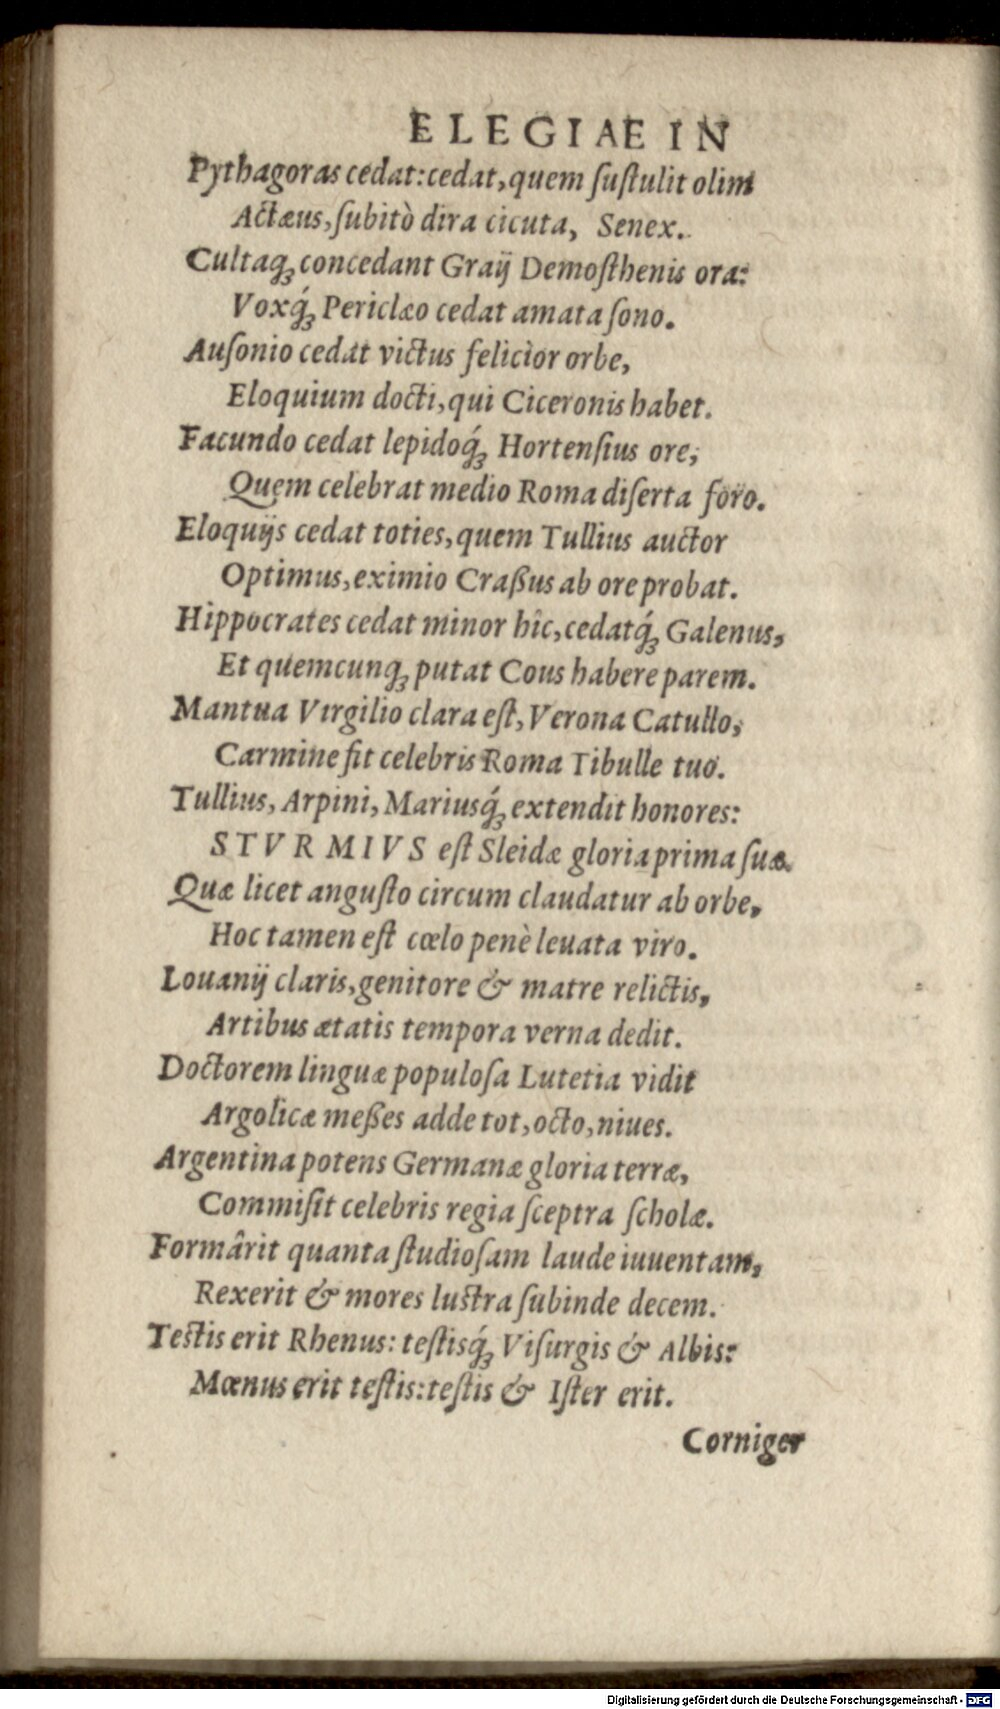 ELEGIAE IN
Pythagoras cedat: cedat, quem ſuſtulit olim
Actæus, ſubitò dira cicuta, Senex.
Cultaq́ꝫ concedant Graij Demoſthenis ora:
Voxq́ꝫ Periclæo cedat amata ſono.
Auſonio cedat victus felicior orbe,
Eloquium docti, qui Ciceronis habet.
Facundo cedat lepidoq́ꝫ Hortenſius ore,
Quem celebrat medio Roma diſerta foro.
Eloquijs cedat toties, quem Tullius auctor
Optimus, eximio Craßus ab ore probat.
Hippocrates cedat minor hîc, cedatq́ꝫ Galenus,
Et quemcunqꝫ putat Cous habere parem.
Mantua Virgilio clara eſt, Verona Catullo,
Carmine fit celebris Roma Tibulle tuo.
Tullius, Arpini, Mariusq́ꝫ extendit honores:
STVRMIVS eſt Sleidæ gloria prima ſuæ.
Quæ licet anguſto circum claudatur ab orbe,
Hoc tamen eſt cœlo penè leuata viro.
Louanij claris, genitore & matre relictis,
Artibus ætatis tempora verna dedit.
Doctorem linguæ populoſa Lutetia vidit
Argolicæ meßes adde tot, octo, niues.
Argentina potens Germanæ gloria terræ,
Commiſit celebris regia ſceptra ſcholæ.
Formârit quanta ſtudioſam laude iuuentam,
Rexerit & mores luſtra ſubinde decem.
Teſtis erit Rhenus: teſtisq́ꝫ Viſurgis & Albis:
Mœnus erit teſtis: teſtis & Iſter erit.
Corniger
Digitalisierung gefördert durch die Deutsche Forschungsgemeinschaft - DFG